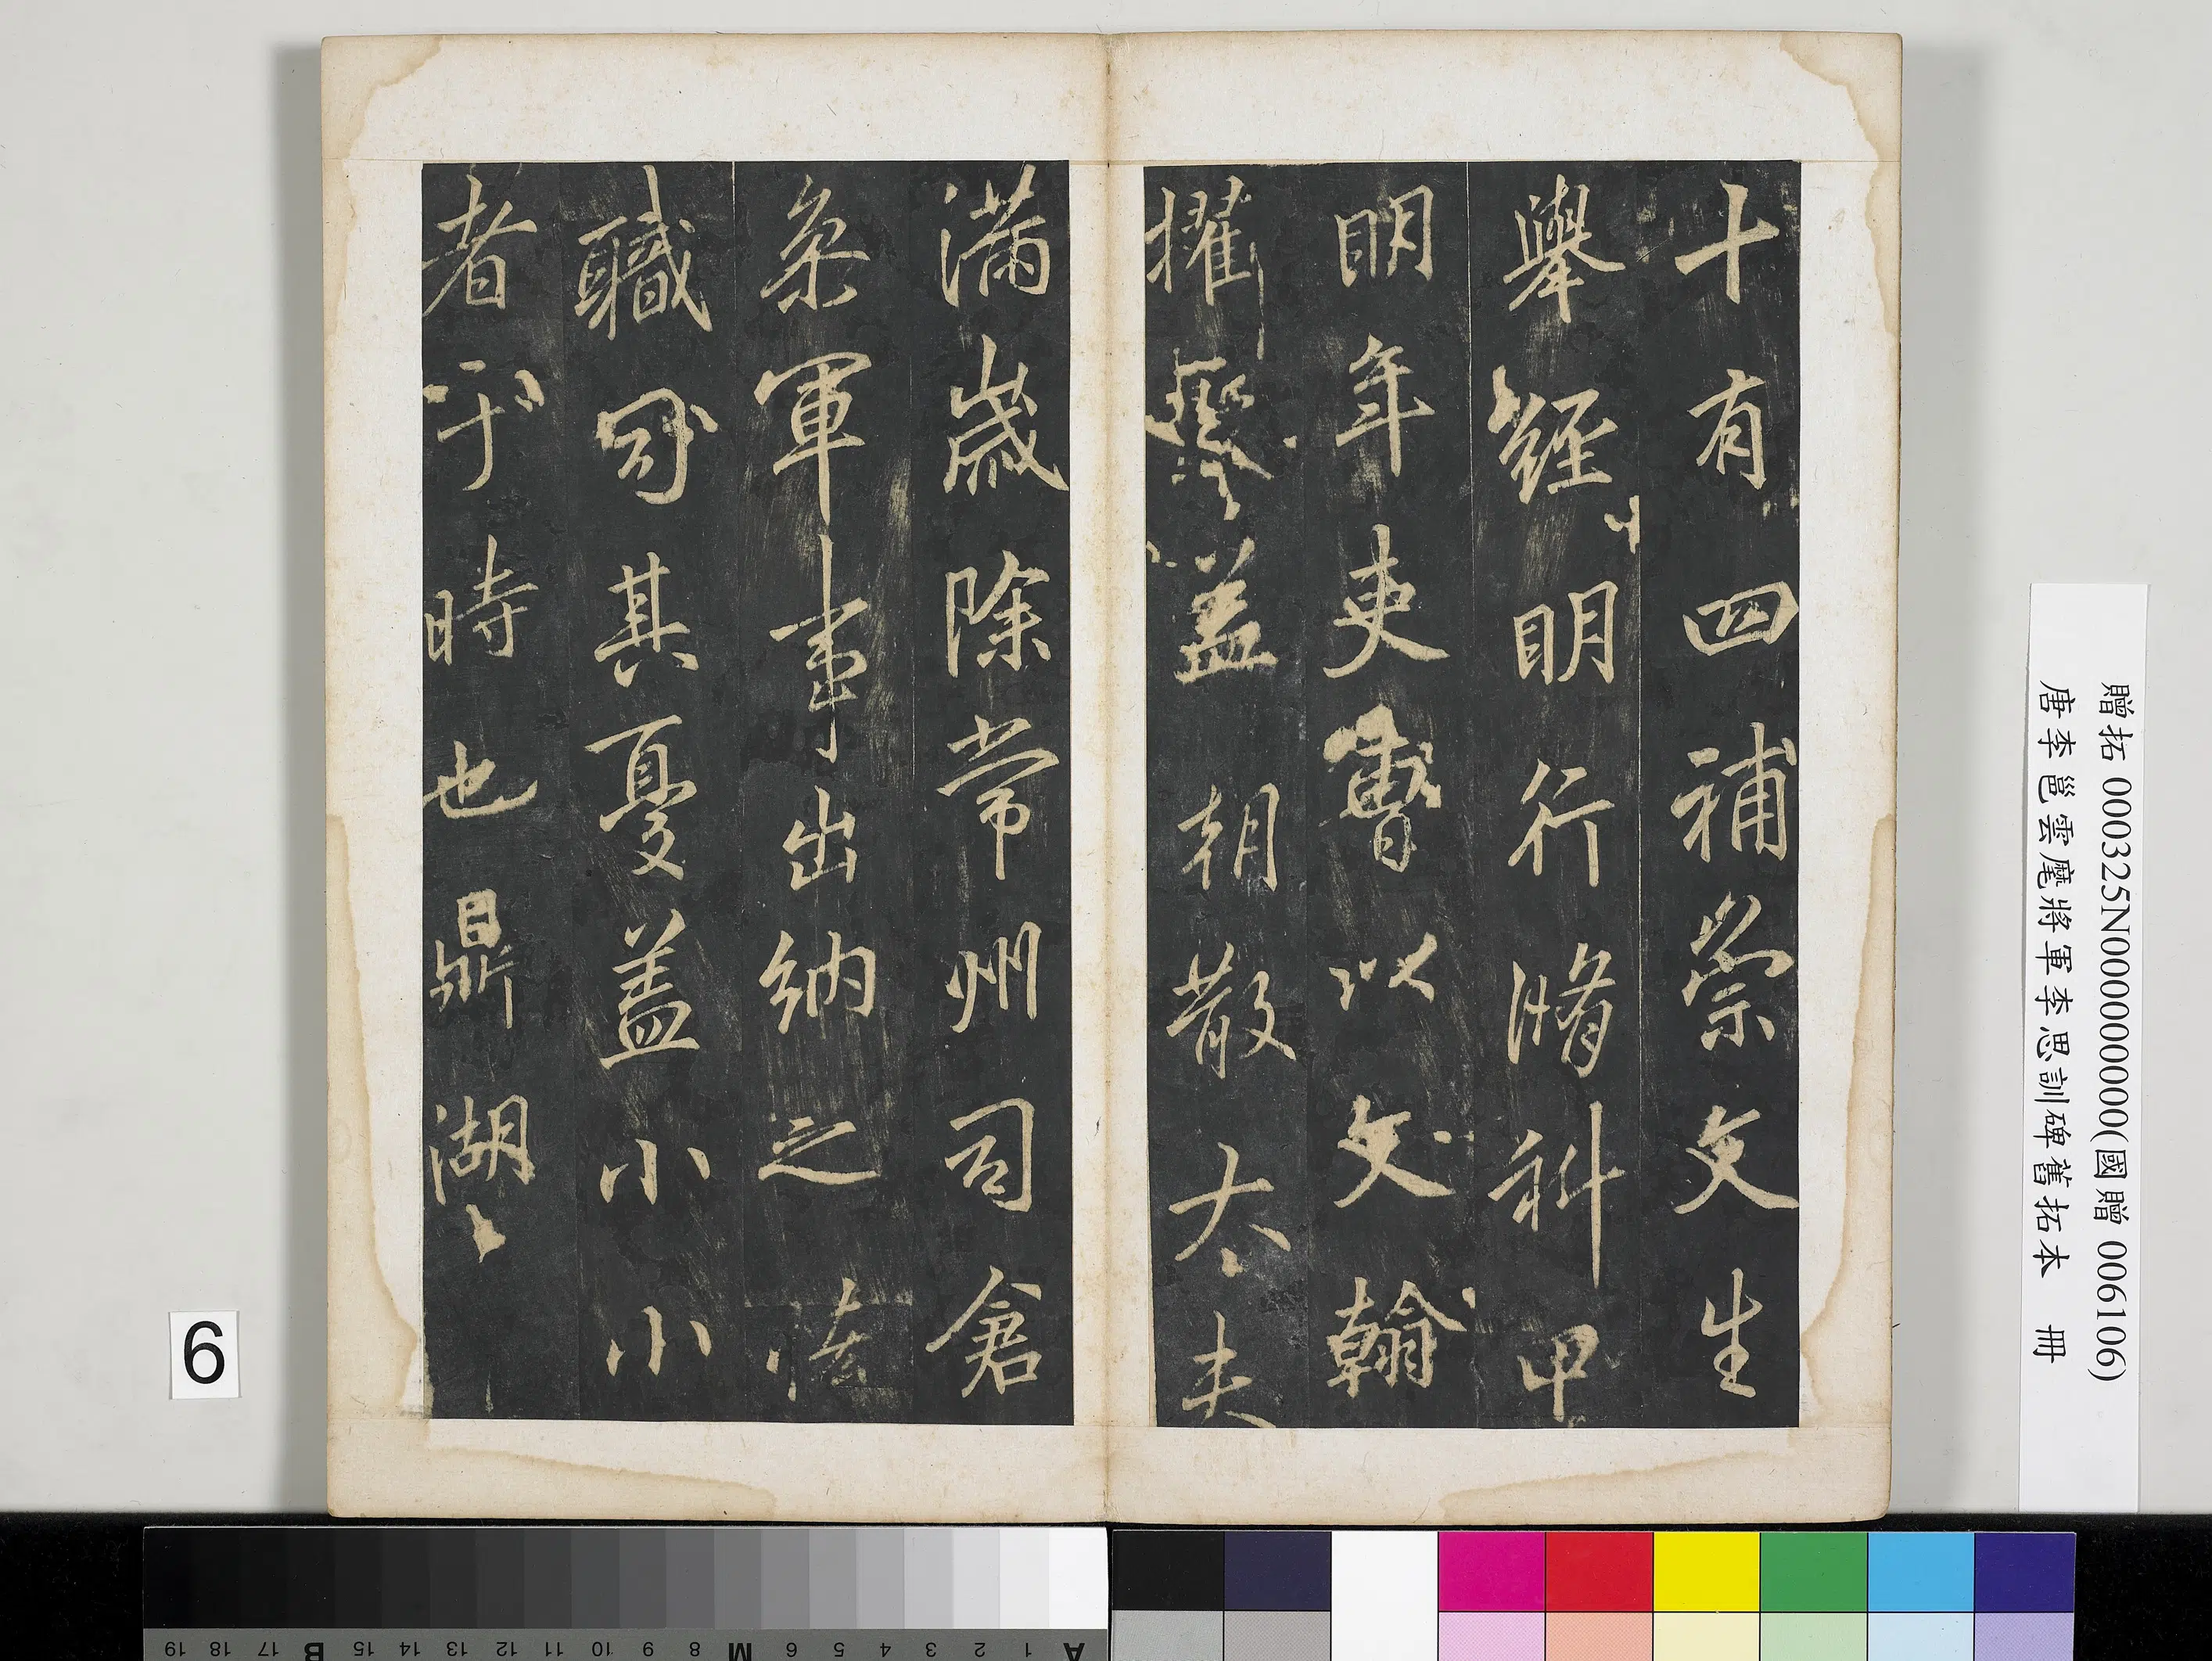 十有四補崇文生
舉經明行脩科甲
明年吏曹以文翰
擢 蓋朝散大夫
滿歲除常州司倉
叅軍事出納之恡
職司其憂蓋小小
者于時也鼎湖
贈拓 000325N000000000(國贈 006106)
唐李邕雲麾將軍李思訓碑舊拓本 冊
6
A 1 2 3 4 5 6 M 8 9 10 11 12 13 14 15 B 17 18 19